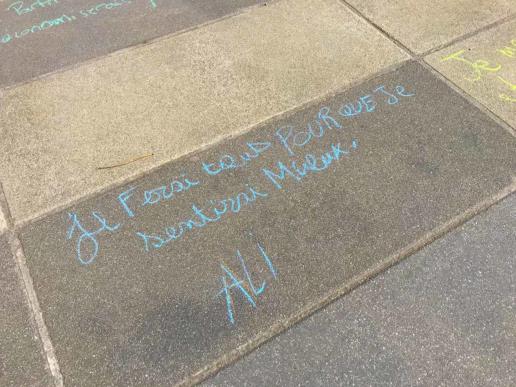 Je Ferai tout POUR QUE Je
sentirai Mieux.
ALI
Je m